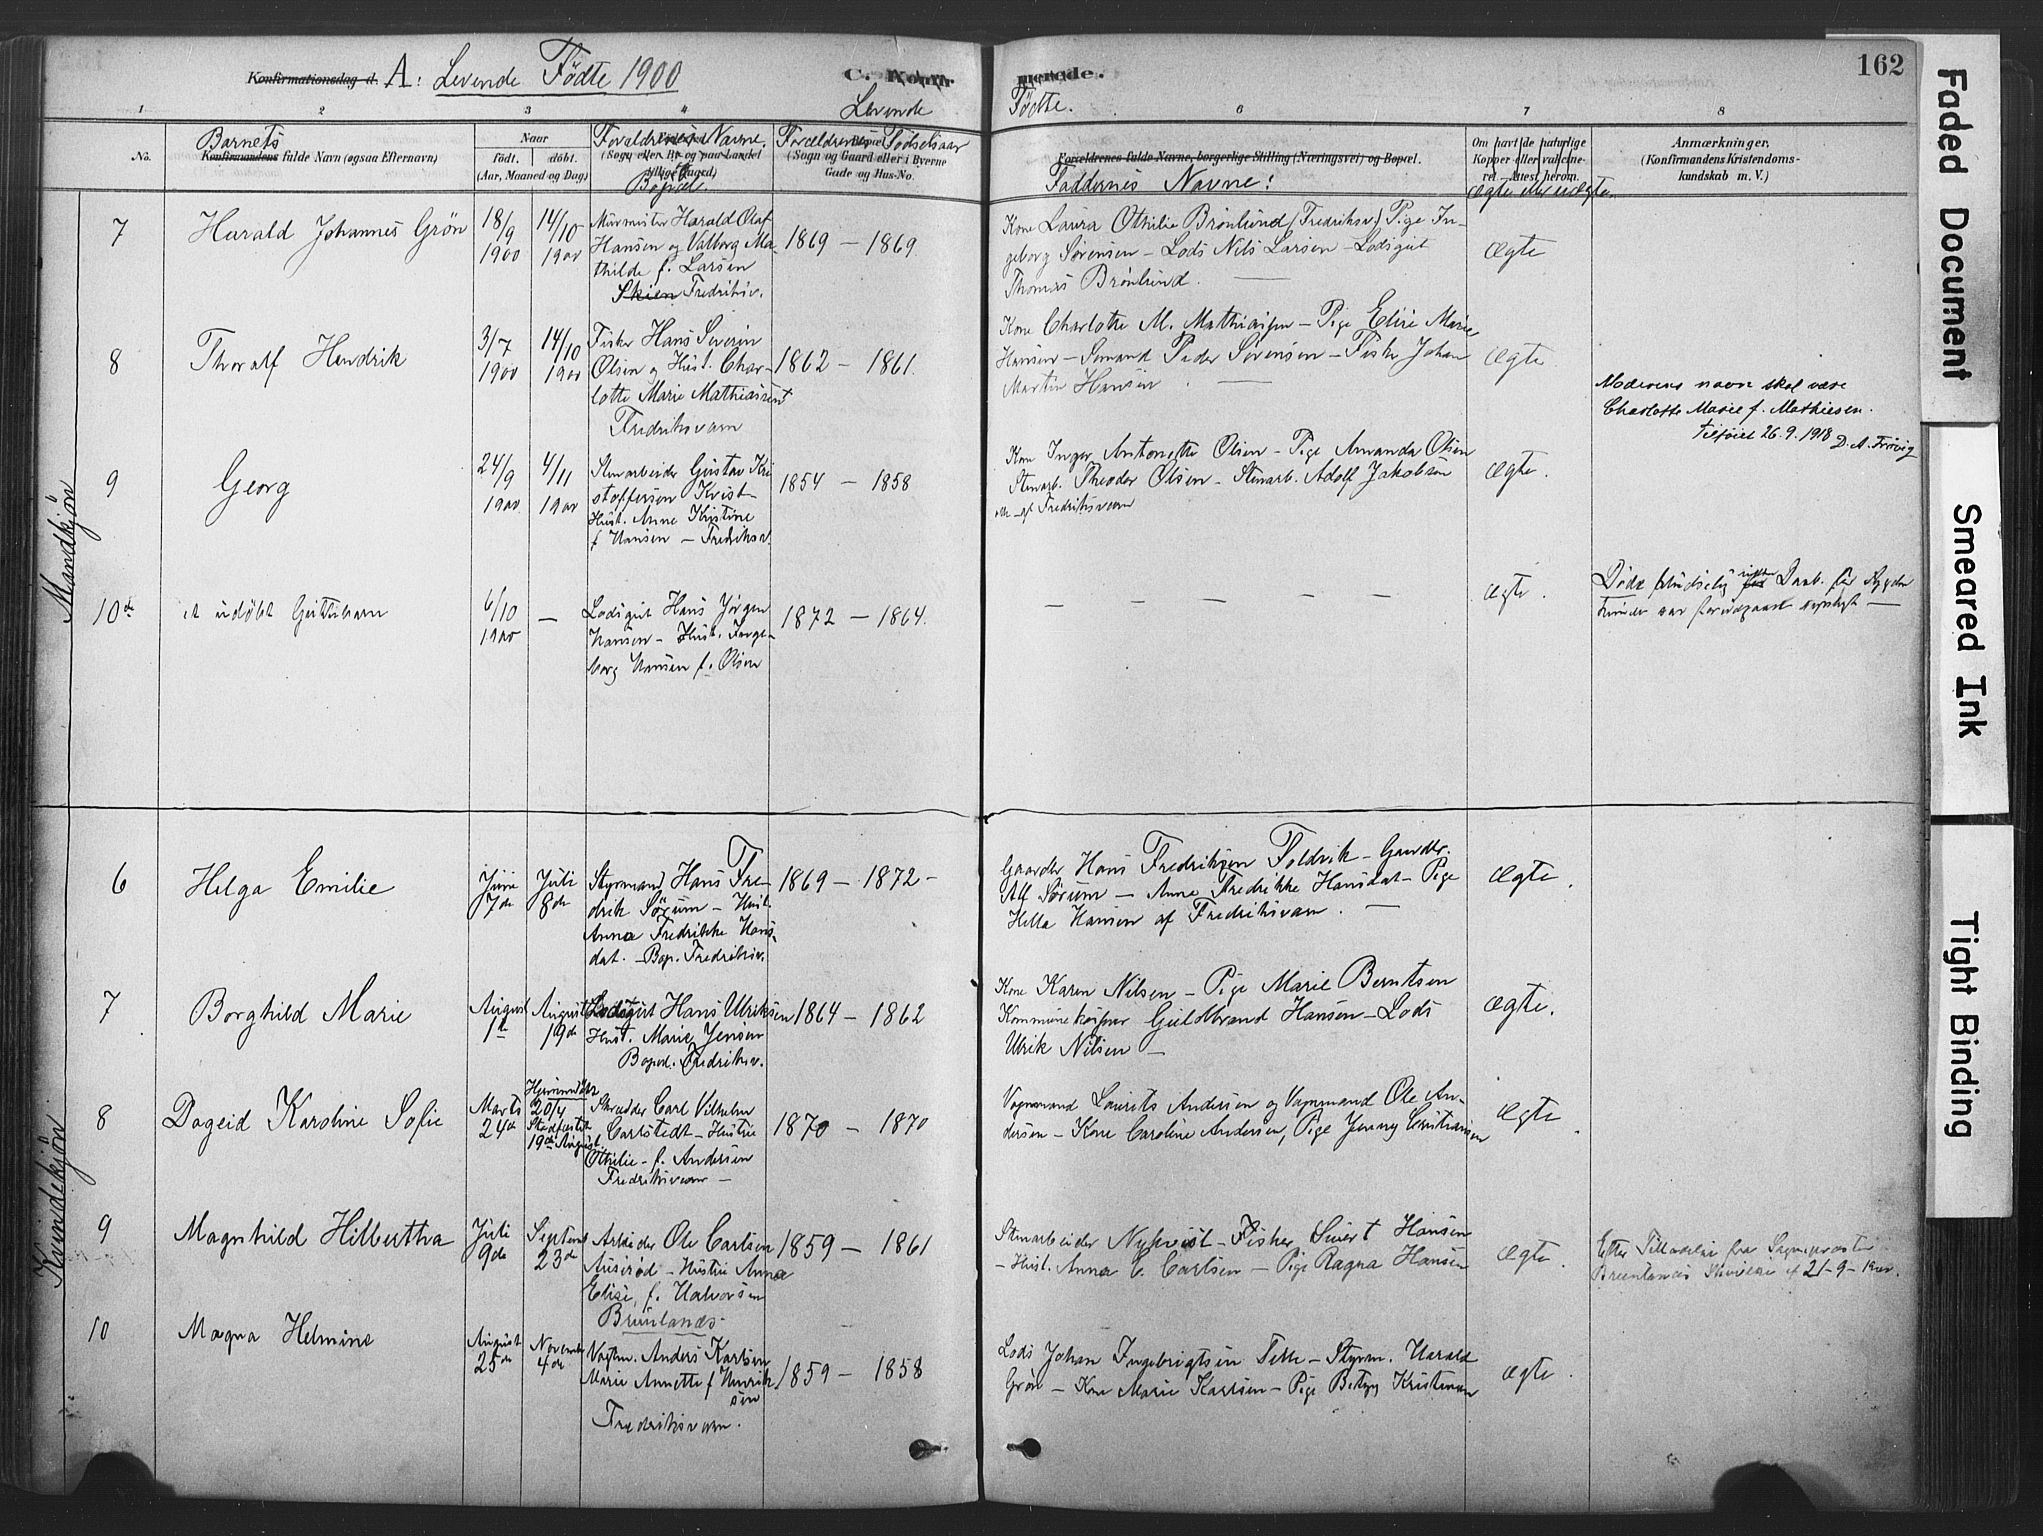 Konfirmationsdag d. A: Levende Fødte 1900
C. Konfir merede.
162
Levende Fødte.
1 2 3 4 6 7 8
No.
Barnets
Konfirmandens fulde Navn (ogsaa Efternavn)
Naar
født. døbt.
(Aar, Maaned og Dag)
Forældrenes Navne.
(Sogn eller By og paa Landet
Bopæl
Forældrenes Fødselsaar
(Sogn og Gaard eller i Byerne
Gade og Hus-No.
Forældrenes fulde Navne, borgerlige Stilling (Næringsvei) og Bopæl.
Faddernes Navne:
Om havt de naturlige
Kopper eller vaccine-
ret Attest herom.
ægte eller uægte.
Anmærkninger.
(Konfirmandens Kristendoms-
kundskab m. V.)
Mandkjøn
7
Harald Johannes Grøn
18/9 1900
14/10 1900
Murmester Harald Olaf
Hansen og Valborg Ma-
thilde f. Larsen
Skien Fredriksv.
1869 — 1869.
Kone Laura Othilie Brønlund (Fredriksv.) Pige In-
geborg Sørensen — Lods Nils Larsen — Lodsgut
Thomas Brønlund. —
Ægte
8
Thoralf Hendrik
3/7 1900
14/10 1900
Fisker Hans Severin
Olsen og Hust. Char-
lotte Marie Mathiassen
Fredriksværn
1862 — 1861.
Kone Charlotte M. Mathiasen — Pige Elise Marie
Hansen — Sømand Peder Sørensen — Fisker Johan
Martin Hansen. —
Ægte.
Moderens navn skal være
Charlotte Marie f. Mathiesen.
Tilføiet 26.9.1918 D. A. Frøvig
9
Georg
24/9 1900
4/11 1900
Stenarbeider Gustav Kri-
stoffersen Kvist
Hust. Anne Kristine
f Hansen — Fredriksv.
1854 — 1858
Kone Inger Antonette Olsen — Pige Amanda Olsen
Stenarb. Theodor Olsen — Stenarb. Adolf Jakobsen
alle af Fredriksværn
Ægte.
10de
et udøbt Guttebarn
6/10 1900
—
Lodsgut Hans Jørgen
Hansen — Hust. Inge-
borg Hansen f. Olsen
1872 — 1864.
— — — — —
Ægte.
Døde pludselig Daab. for Sygdom
—
Kvindekjøn
6
Helga Emilie
Juni 7de
Juli 8de
Styrmand Hans Fre-
drik Sørum — Hust.
Anna Fredrikke Hans-
dat. — Bop. Fredriksv.
1869 — 1872 —
Gaardbr. Hans Fredriksen Foldvik — Gaardbr.
Alf Sørum — Anne Fredrikke Hansdat — Pige
Hella Hansen af Fredriksværn. —
Ægte.
7
Borghild Marie
August 1ste
August 19de
Lodsgut Hans Ulriksen
Hust. Marie Jensen
Bopæl. Fredriksv.
1864 — 1862
Kone Karen Nilsen — Pige Marie Berntsen
Kommunekasserer Guldbrand Hansen — Lods
Ulrik Nilsen —
Ægte.
8
Dageid Karoline Sofie
Marts 24de
Hjemmedøbt 20/4
Stadfæstet
19de August
Skrædder Carl Vilhelm
Carlstedt — Hustru
Othilie — f. Andersen
Fredriksværn —
1870 — 1870
Vognmand Laurits Andersen og Vognmand Ole An-
dersen — Kone Caroline Andersen, Pige Jenny Christiansen
Ægte
9
Magnhild Hilbertha
Juli 9de
Septemb. 23de
Arbeider Ole Carlsen
Auserød — Hustru Anna
Elise, f. Halvorsen
Brunlanæs
1859 — 1861
Stenarbeider Nykvist — Fisker Sivert Hansen
— Hust. Anna E. Carlsen — Pige Ragna Hansen
Ægte.
Efter Tilladelse fra Sogneprosten
Brunlanæs Skrivelse af 21-9-1900.
10
Magna Helmine
August 25de
November 4de
Vagtm. Anders Karlsen
Marie Annette f Henrik-
sen
Fredriksværn.
1859 — 1858
Lods Johan Ingebrigtsen Telle — Styrm. Harald
Grøn — Kone Marie Karlsen — Pige Betzy Kristensen
Ægte.
Faded Document
Smeared Ink
Tight Binding